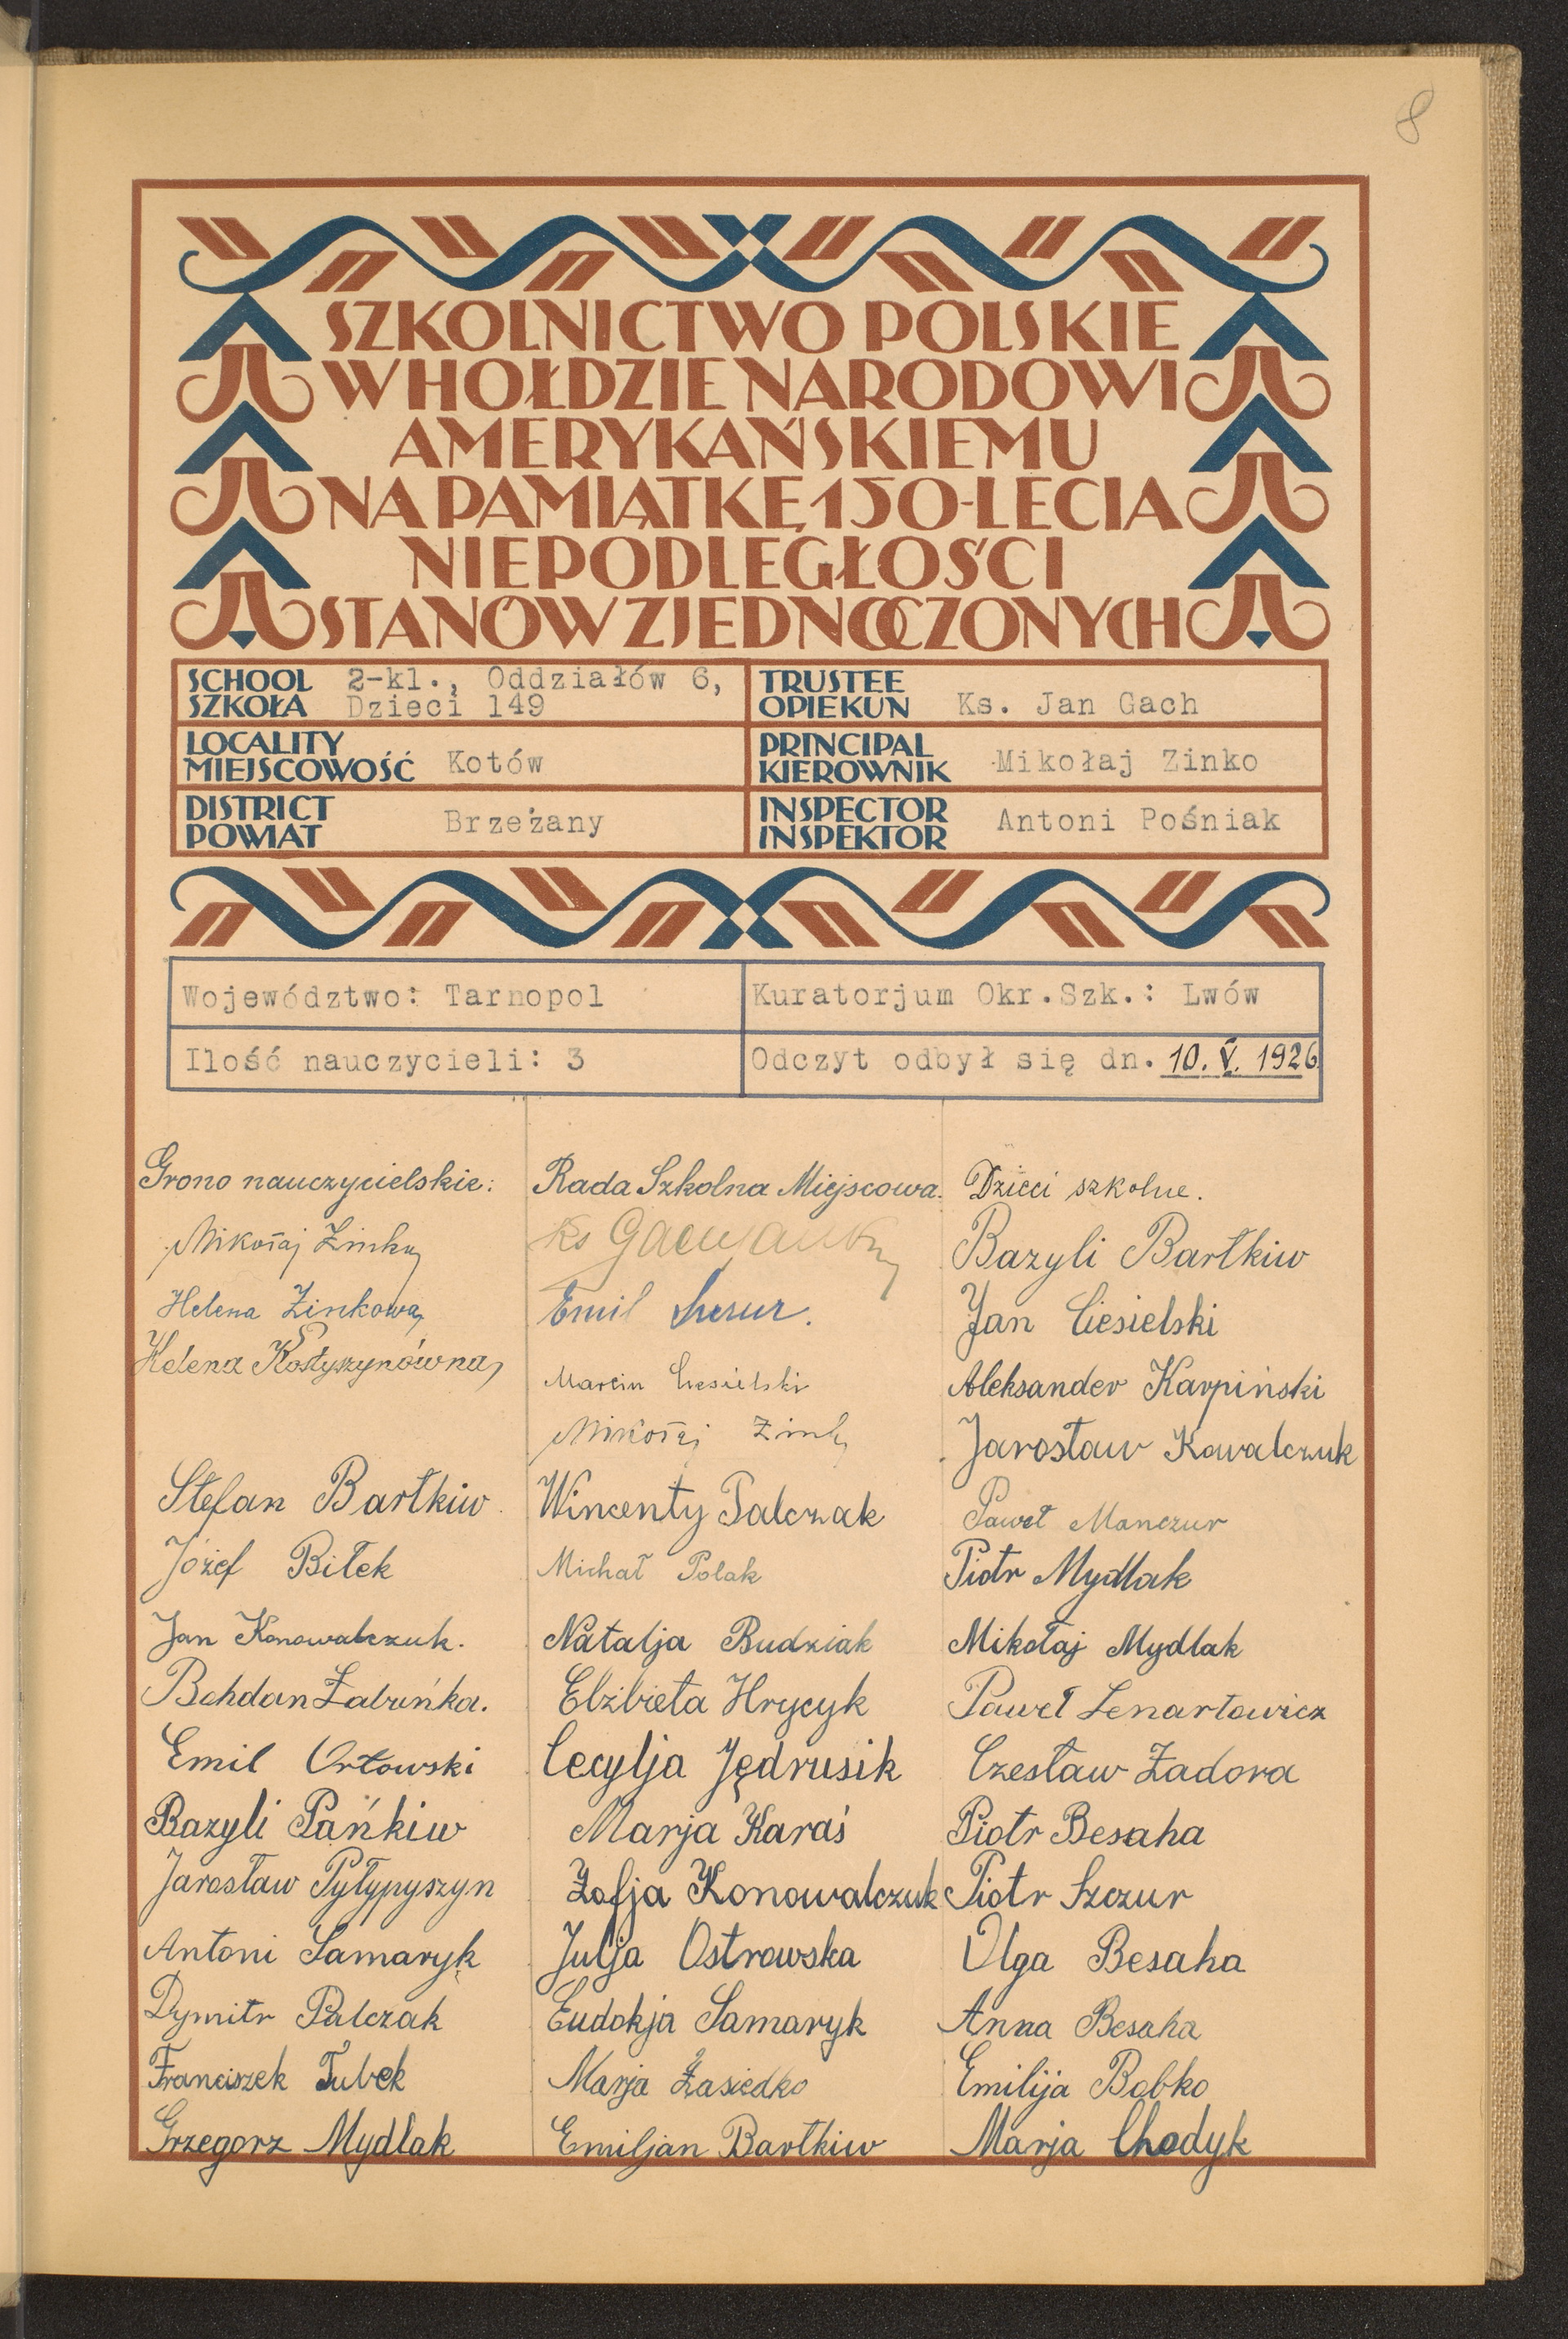 8
SZKOLNICTWO POLSKIE
W HOŁDZIE NARODOWI
AMERYKAŃSKIEMU
NA PAMIĄTKĘ 150-LECIA
NIEPODLEGŁOŚCI
STANÓW ZJEDNOCZONYCH
SCHOOL SZKOŁA 2-kl., Oddziałów 6, Dzieci 149
TRUSTEE OPIEKUN Ks. Jan Gach
LOCALITY MIEJSCOWOŚĆ Kotów
PRINCIPAL KIEROWNIK Mikołaj Zinko
DISTRICT POWIAT Brzeżany
INSPECTOR INSPEKTOR Antoni Pośniak
Województwo: Tarnopol
Kuratorjum Okr.Szk.: Lwów
Ilość nauczycieli: 3
Odczyt odbył się dn. 10. V. 1926
Grono nauczycielskie:
Mikołaj Zinko
Helena Zinkowa
Helena Kostyszynówna
Stefan Bartkiw
Józef Biłek
Jan Konowalczuk.
Bohdan Łabińka.
Emil Orłowski
Bazyli Pańkiw
Jarosław Pyłypyszyn
Antoni Samaryk
Dymitr Palczak
Franciszek Tubek
Grzegorz Mydlak
Rada Szkolna Miejscowa.
Ks Gach Jan
Emil Szczur.
Marcin Ciesielski
Mikołaj Zinko
Wincenty Palczak
Michał Polak
Natalja Budziak
Elżbieta Hrycyk
Cecylja Jędrusik
Marja Karaś
Zofja Konowalczuk
Julja Ostrowska
Eudokja Samaryk
Marja Zasiedko
Emiljan Bartkiw
Dzieci szkolne.
Bazyli Bartkiw
Jan Ciesielski
Aleksander Karpiński
Jarosław Kowalczuk
Paweł Manczur
Piotr Mydlak
Mikołaj Mydlak
Paweł Lenartowicz
Czesław Zadora
Piotr Besaha
Piotr Szczur
Olga Besaha
Anna Besaha
Emilija Bobko
Marja Chodyk